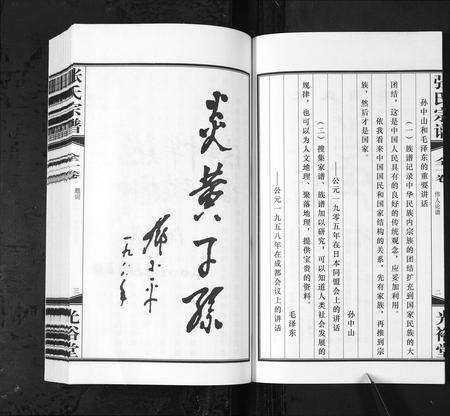 张氏宗谱
全一卷
伟人论谱
二
光裕堂
孙中山和毛泽东的重要讲话
(一)族谱记录中华民族内宗族的团结扩充到国家民族的大
团结,这是中国人民具有的良好的传统观念,应妥加利用。
依我看来中国国民和国家结构的关系,先有家族,再推到宗
族,然后才是国家。
孙中山
——公元一九零五年在日本同盟会上的讲话
(二)搜集家谱、族谱加以研究,可以知道人类社会发展的
规律,也可以为人文地理、聚落地理,提供宝贵的资料。
毛泽东
——公元一九五八年在成都会议上的讲话
炎黄子孙
邓小平
一九八六年
张氏宗谱
全一卷
题词
三
光裕堂